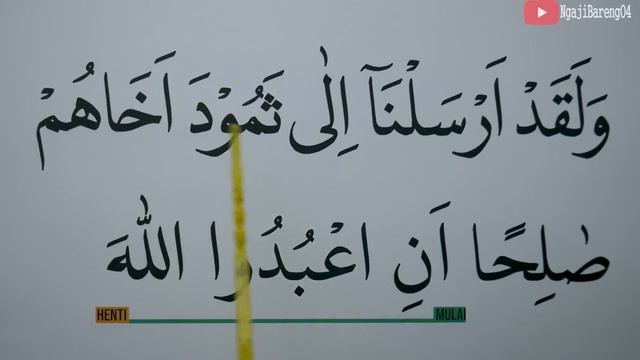 NgajiBareng04
وَلَقَدْ اَرْسَلْنَآ اِلٰى ثَمُوْدَ اَخَاهُمْ
صٰلِحًا اَنِ اعْبُدُوا اللّٰهَ
HENTI MULAI